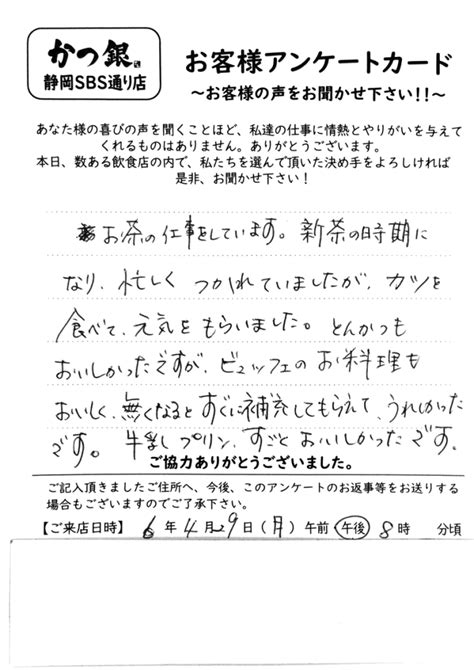 かつ銀
静岡SBS通り店
お客様アンケートカード
～お客様の声をお聞かせ下さい!!～
あなた様の喜びの声を聞くことほど、私達の仕事に情熱とやりがいを与えて
くれるものはありません。ありがとうございます。
本日、数ある飲食店の内で、私たちを選んで頂いた決め手をよろしければ
是非、お聞かせ下さい!
お茶の仕事をしています。新茶の時期に
なり、忙しく つかれていましたが、カツを
食べて、元気を もらいました。とんかつも
おいしかったですが、ビュッフェの お料理も
おいしく、無くなると すぐに補充してもらえて、うれしかった
です。牛乳プリン、すごく おいしかったです。
ご協力ありがとうございました。
ご記入頂きましたご住所へ、今後、このアンケートのお返事等をお送りする
場合もございますのでご了承下さい。
【ご来店日時】 6年4月29日(月) 午前 午後 8時 分頃